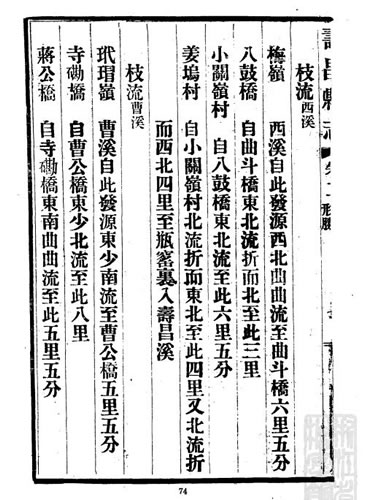 壽昌縣志 卷二 形勝
枝流西溪
梅嶺 西溪自此發源西北曲曲流至曲斗橋六里五分
八鼓橋 自曲斗橋東北流折而北至此三里
小關嶺村 自八鼓橋東北流至此六里五分
姜塢村 自小關嶺村北流折而東北至此四里又北流折
而西北四里至瓶窰裏入壽昌溪
枝流曹溪
玳瑁嶺 曹溪自此發源東少南流至曹公橋五里五分
寺磡橋 自曹公橋東少北流至此八里
蔣公橋 自寺磡橋東南曲曲流至此五里五分
74